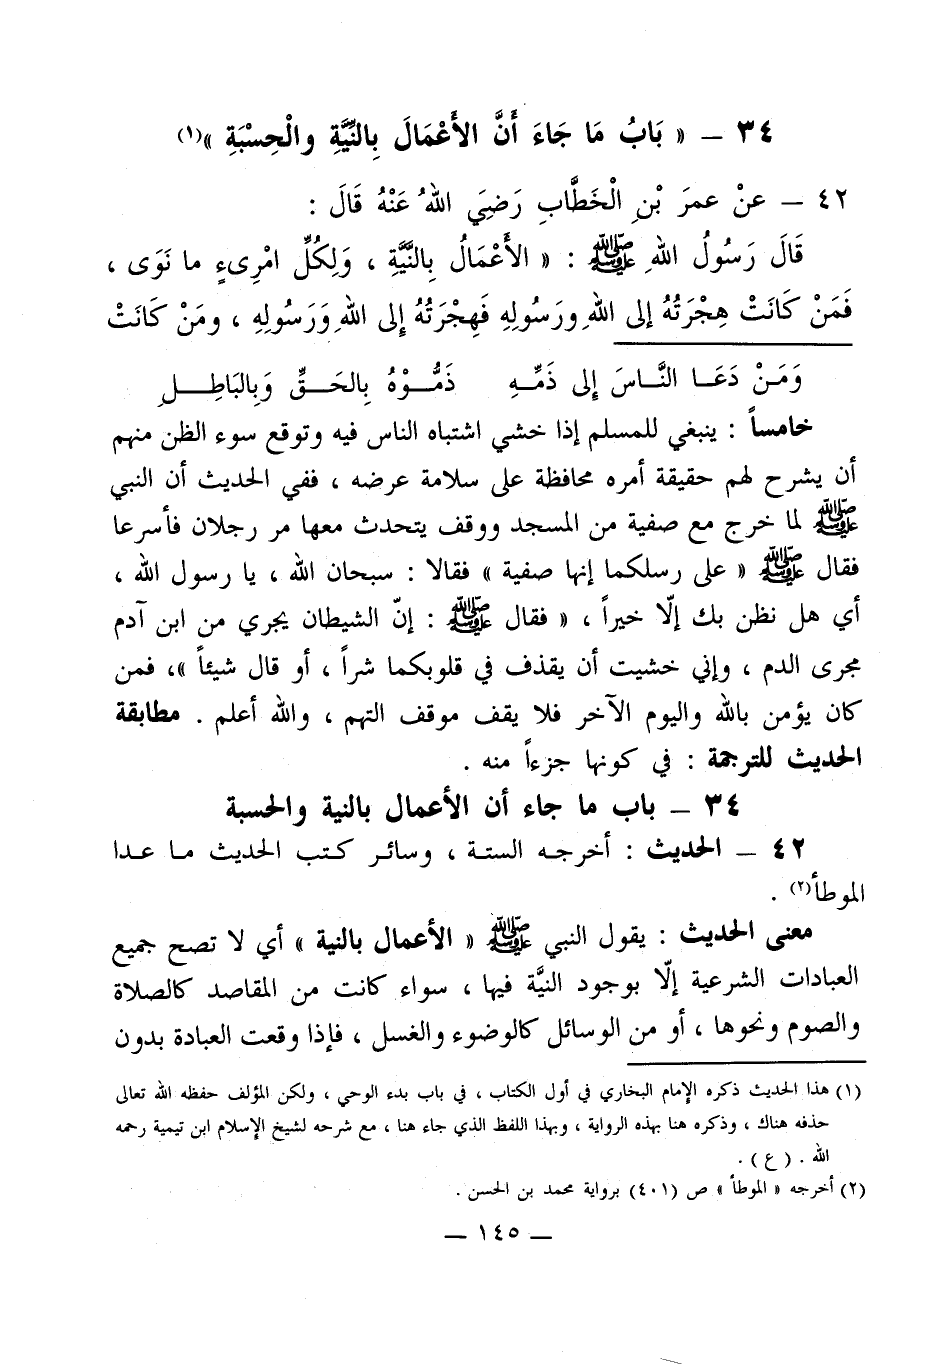 ٣٤ ــ « بَابُ مَا جَاءَ أَنَّ الأَعْمَالَ بِالنِّيَّةِ والْحِسْبَةِ »(١)
٤٢ ــ عنْ عمرَ بْنِ الْخَطَّابِ رَضِيَ اللهُ عَنْهُ قَالَ :
قَالَ رَسُولُ اللهِ ﷺ : « الأَعْمَالُ بِالنَّيَّةِ ، وَلِكُلِّ امْرِىءٍ ما نَوَى ،
فَمَنْ كَانَتْ هِجْرَتُهُ إلى اللهِ ورَسُولِهِ فَهِجْرَتُهُ إِلى اللهِ وَرَسُولِهِ ، ومَنْ كَانَتْ
وَمَـنْ دَعَــا النَّــاسَ إِلى ذَمِّــهِ ذَمُّــوْهُ بِالحَــقِّ وَبِالبَاطِــلِ
خامساً : ينبغي للمسلم إذا خشي اشتباه الناس فيه وتوقع سوء الظن منهم
أن يشرح لهم حقيقة أمره محافظة على سلامة عرضه ، ففي الحديث أن النبي
ﷺ لما خرج مع صفية من المسجد ووقف يتحدث معها مر رجلان فأسرعا
فقال ﷺ « على رسلكما إنها صفية » فقالا : سبحان الله ، يا رسول الله ،
أي هل نظن بك إلّا خيراً ، « فقال ﷺ : إنّ الشيطان يجري من ابن آدم
مجرى الدم ، وإني خشيت أن يقذف في قلوبكما شراً ، أو قال شيئاً »، فمن
كان يؤمن بالله واليوم الآخر فلا يقف موقف التهم ، والله أعلم . مطابقة
الحديث للترجمة : في كونها جزءاً منه .
٣٤ ــ باب ما جاء أن الأعمال بالنية والحسبة
٤٢ ــ الحديث : أخرجـه الستة ، وسائـر كـتب الحديث مـا عـدا
الموطأ(٢) .
معنى الحديث : يقول النبي ﷺ « الأعمال بالنية » أي لا تصح جميع
العبادات الشرعية إلّا بوجود النيَّة فيها ، سواء كانت من المقاصد كالصلاة
والصوم ونحوها ، أو من الوسائل كالوضوء والغسل ، فإذا وقعت العبادة بدون
(١) هذا الحديث ذكره الإمام البخاري في أول الكتاب ، في باب بدء الوحي ، ولكن المؤلف حفظه الله تعالى
حذفه هناك ، وذكره هنا بهذه الرواية ، وبهذا اللفظ الذي جاء هنا ، مع شرحه لشيخ الإسلام ابن تيمية رحمه
الله . ( ع ) .
(٢) أخرجه « الموطأ » ص (٤٠١) برواية محمد بن الحسن .
ــ ١٤٥ ــ